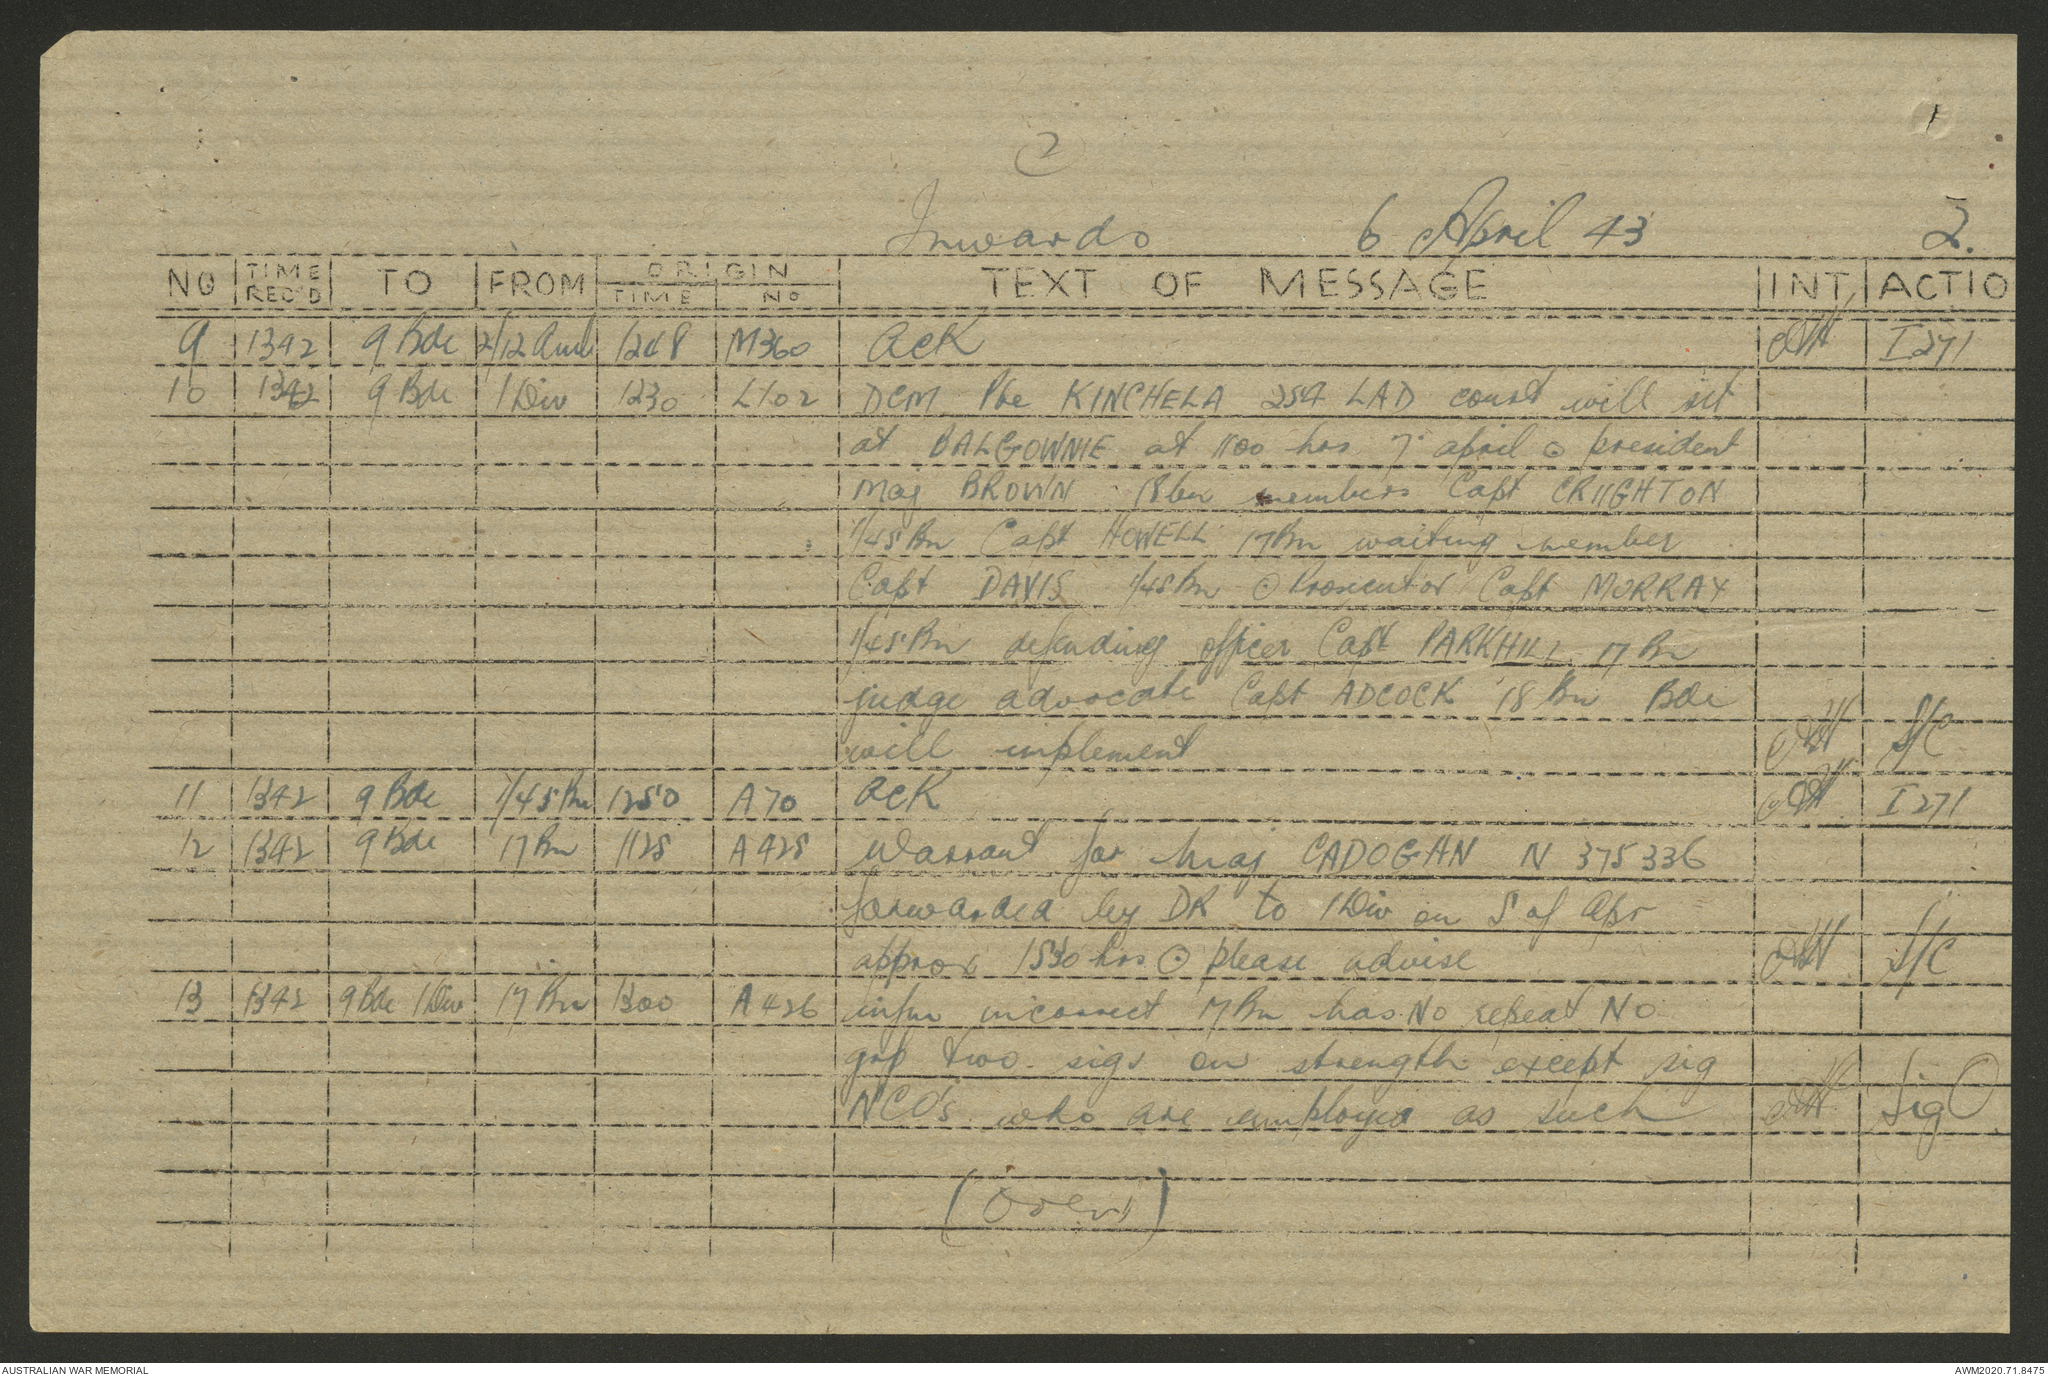 1
2
Inwards 6 April 43 2.
NO TIME REC'D TO FROM ORIGIN TIME No TEXT OF MESSAGE INT ACTIO
9 1342 9 Bde 2/12 Aml 1248 M360 ACK I 271
10 1342 9 Bde 1 Div 1230 L102 DCM Pte KINCHELA 254 LAD court will sit
at BALGOWNIE at 1100 hrs 7 april ⊙ president
Maj BROWN 18bn members Capt CRIIGHTON
1/45 Bn Capt HOWELL 17Bn waiting member
Capt DAVIS 1/45 Bn ⊙ Prosecutor Capt MURRAY
1/45 Bn defending officer Capt PARKHILL 17 Bn
judge advocate Capt ADCOCK 18 Bn Bde
will implement S/C
11 1342 9 Bde 1/45 Bn 1250 A70 ACK I 271
12 1342 9 Bde 17 Bn 1125 A425 Warrant for Maj CADOGAN N 375336
forwarded by DR to 1 Div on 5 of Apr
approx 1530 hrs ⊙ please advise S/C
13 1342 9 Bde 1 Div 17 Bn 1300 A426 infm incorrect 17 Bn has No repeat No
grp two sigs on strength except sig
NCO's who are employed as such Sig O
(Over)
AUSTRALIAN WAR MEMORIAL AWM2020.71.8475